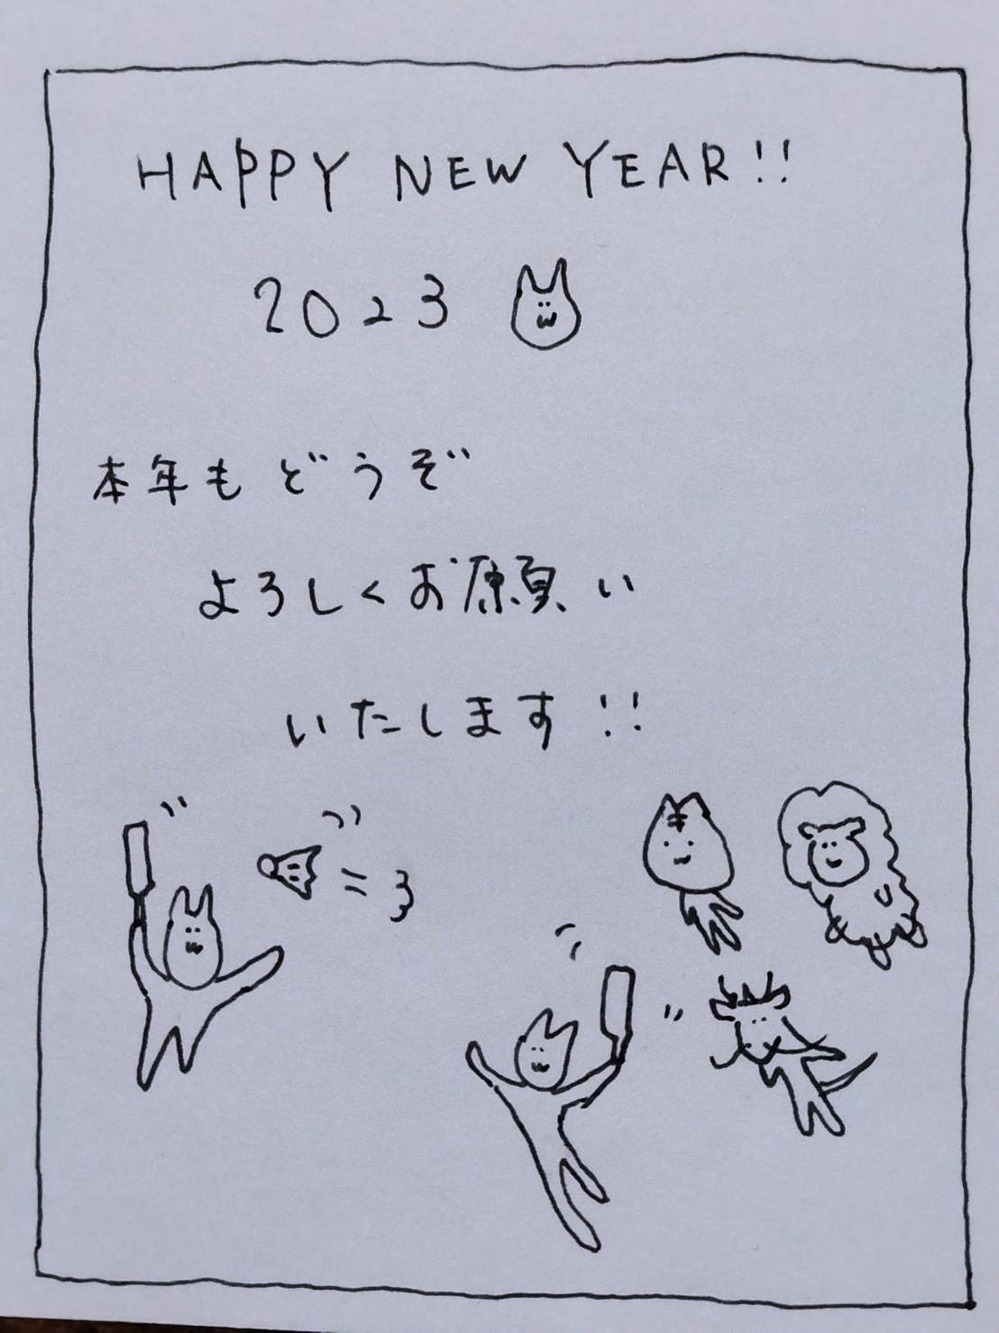 HAPPY NEW YEAR!!
2023
本年もどうぞ
よろしくお願い
いたします!!